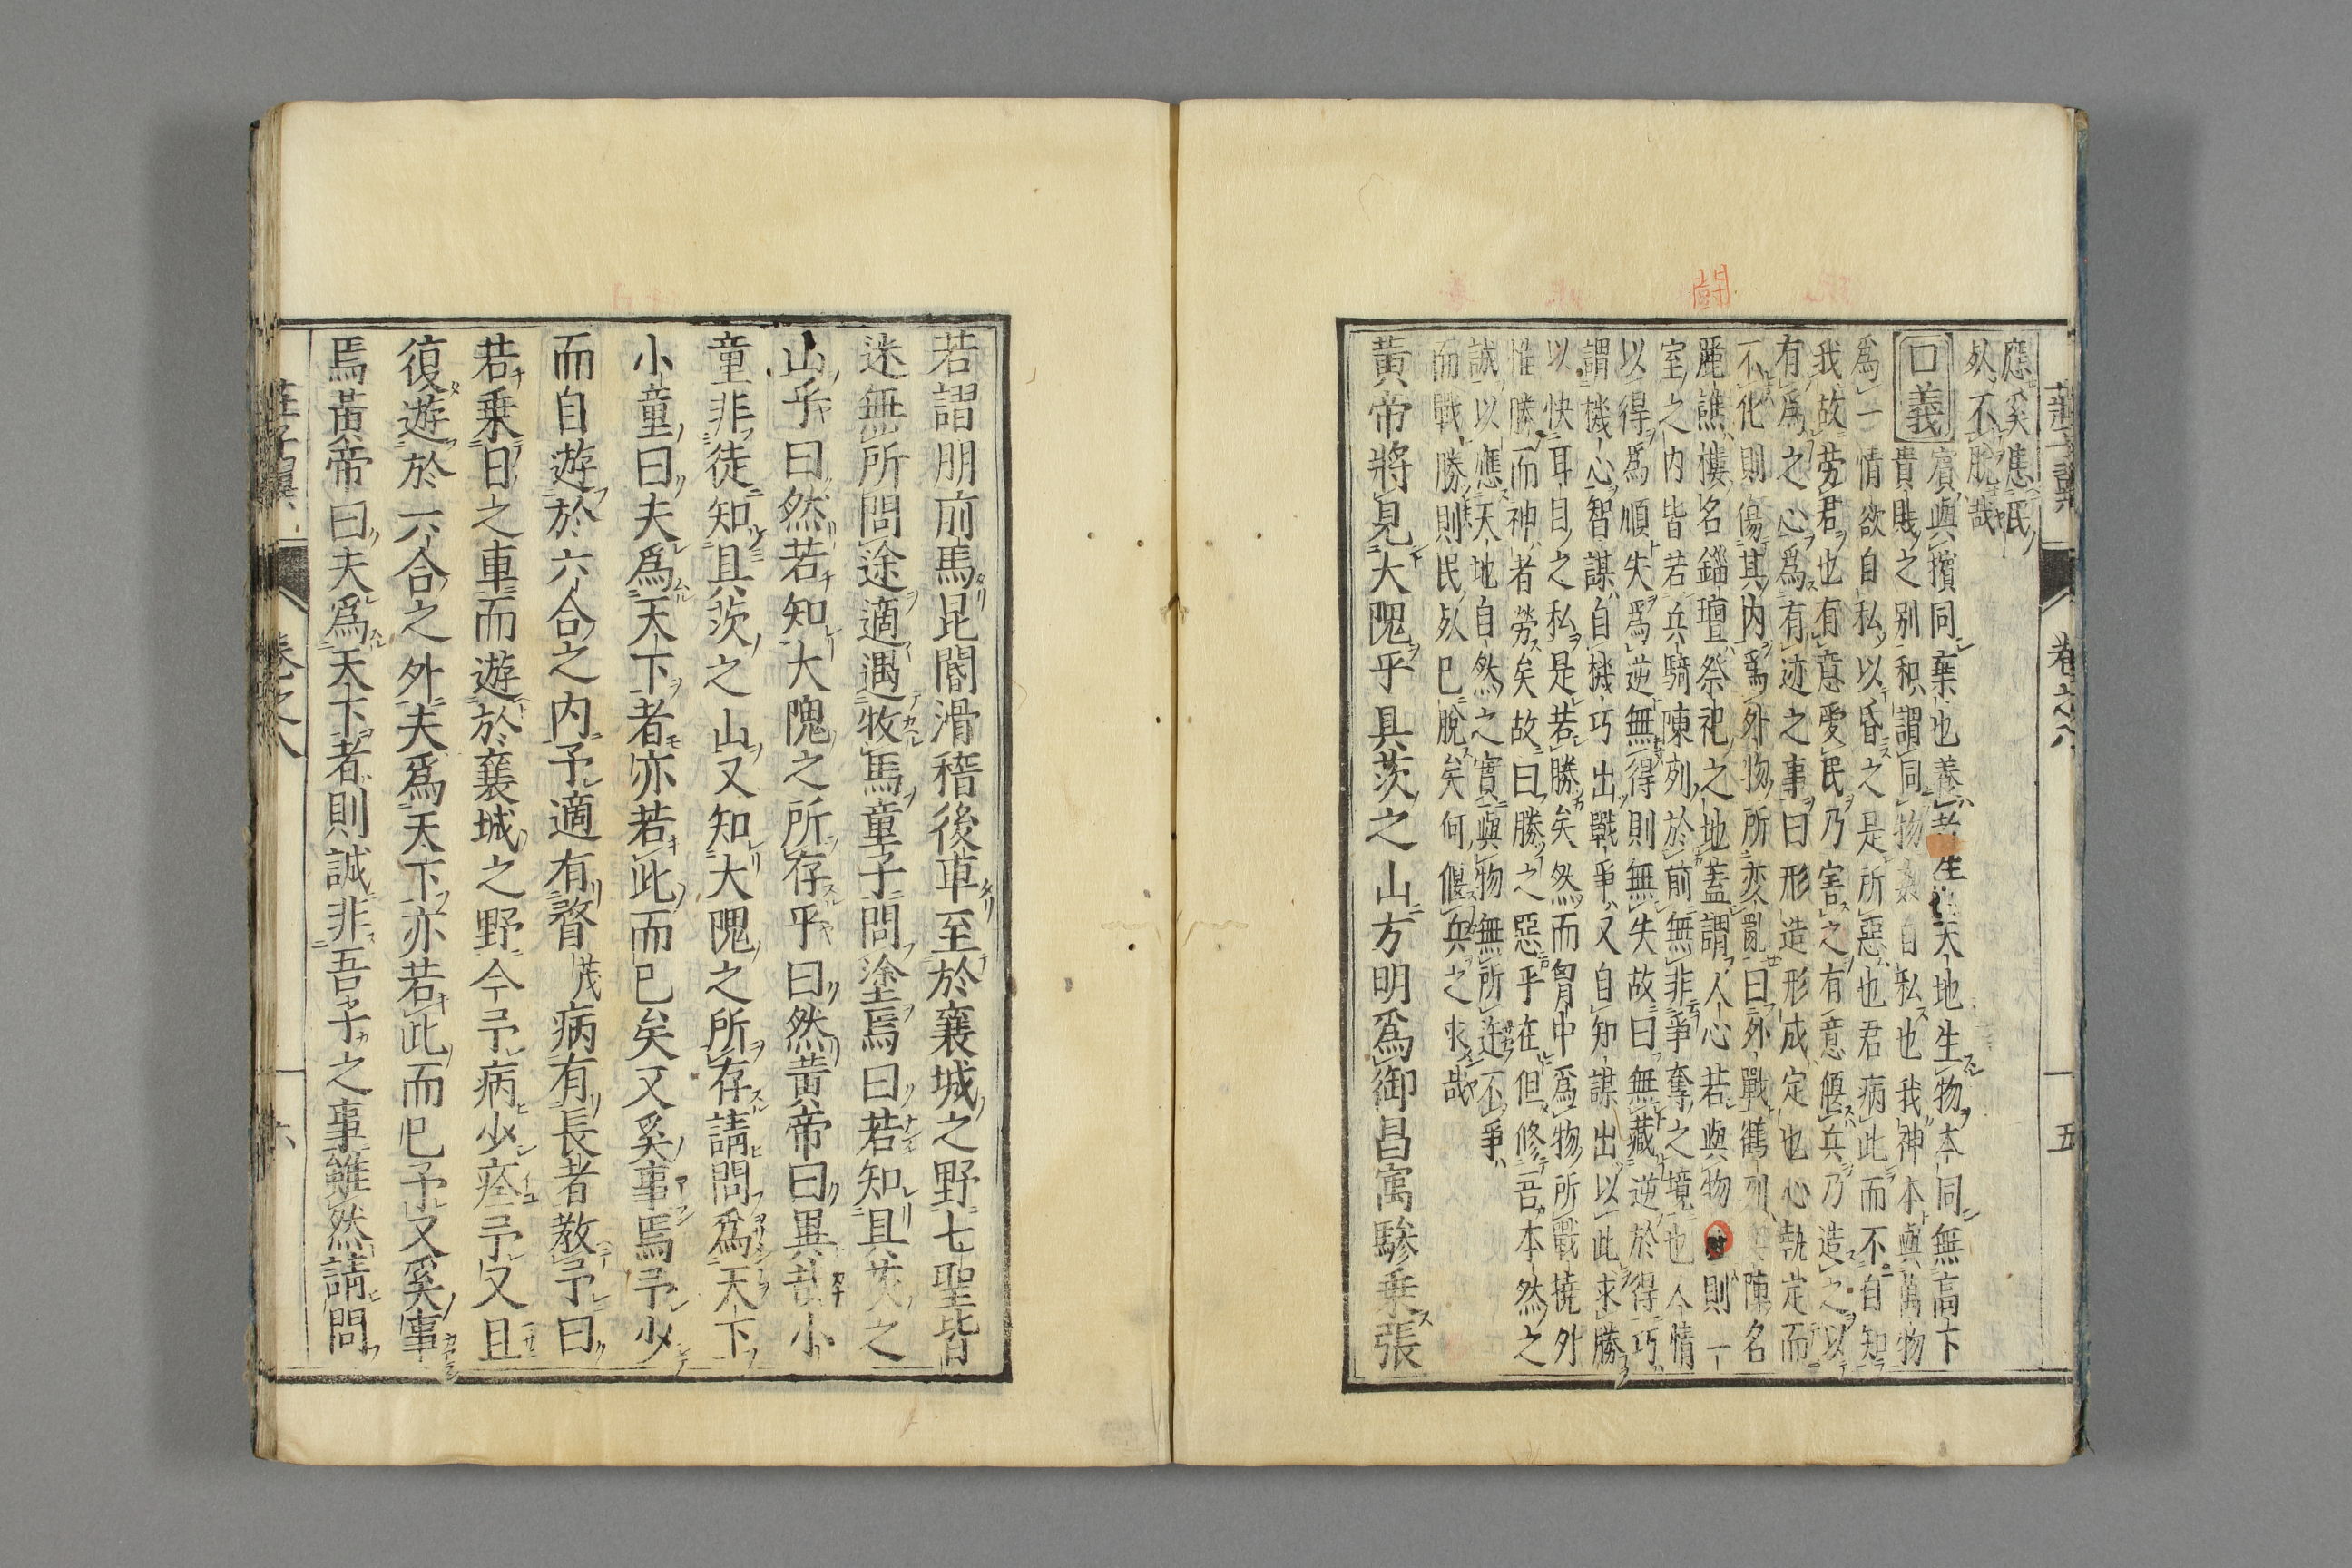 莊子翼
卷之八
五
應奚應民
死不脫哉
口義
賓與擯同棄也養者生天地生物本同無高下
貴賤之别積謂同物自私也我神本與萬物
爲一情欲自私以昏之是所惡也君病此而不自知
我故勞君也有意愛民乃害之有意偃兵乃造之以
有爲之心爲有迹之事曰形造形成定也心執定而
不化則傷其内爲外物所变亂曰外戰鶴列陳名
麗譙樓名錙壇祭祀之地蓋謂人心若與物則一
室之内皆若兵騎陳列於前無非爭奪之境也人情
以得爲順失爲逆無得則無失故曰無藏逆於得巧
謂機心智謀自機巧出戰爭又自知謀出以此求勝
以快耳目之私是若勝矣然而胷中爲物所戰撓外
惟勝而神者勞矣故曰勝之惡乎在但修吾本然之
誠以應天地自然之實與物無所迕不爭
而戰勝則民死已脫矣何偃兵之求哉
闘
黃帝將見大隗乎具茨之山方明爲御昌寓驂乗張
若謵朋前馬昆閽滑稽後車至於襄城之野七聖皆
迷無所問途適遇牧馬童子問塗焉曰若知具茨之
山乎曰然若知大隗之所存乎曰然黄帝曰異哉小
童非徒知具茨之山又知大隗之所存請問爲天下
小童曰夫爲天下者亦若此而已矣又奚事焉予少
而自遊於六合之内予適有瞀茂病有長者教予曰
若乗日之車而遊於襄城之野今予病少痊予又且
復遊於六合之外夫爲天下亦若此而已予又奚事
焉黃帝曰夫爲天下者則誠非吾子之事雖然請問
莊子翼
卷之八
六